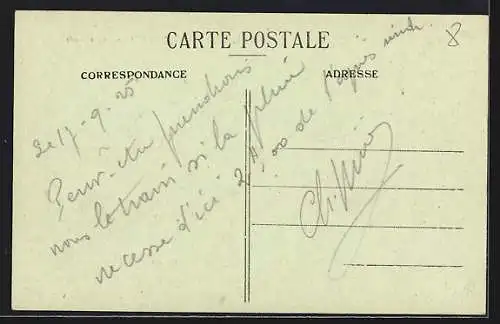 CARTE POSTALE
CORRESPONDANCE
ADRESSE
8
Le 17-9-25
prendrons
nous le train si la pluie
necesse d'ici 2 H, 00 de l'après midi.